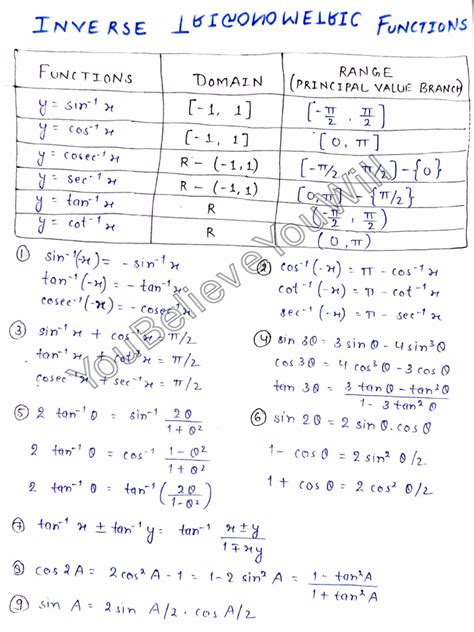 INVERSE TRIGONOMETRIC FUNCTIONS
FUNCTIONS DOMAIN RANGE (PRINCIPAL VALUE BRANCH)
y = sin⁻¹ x [-1, 1] [-π/2, π/2]
y = cos⁻¹ x [-1, 1] [0, π]
y = cosec⁻¹ x R - (-1,1) [-π/2, π/2] - {0}
y = sec⁻¹ x R - (-1,1) [0, π] - {π/2}
y = tan⁻¹ x R (-π/2, π/2)
y = cot⁻¹ x R (0, π)
① sin⁻¹(-x) = - sin⁻¹ x
tan⁻¹(-x) = - tan⁻¹ x
cosec⁻¹(-x) = - cosec⁻¹ x
② cos⁻¹(-x) = π - cos⁻¹ x
cot⁻¹(-x) = π - cot⁻¹ x
sec⁻¹(-x) = π - sec⁻¹ x
③ sin⁻¹ x + cos⁻¹ x = π/2
tan⁻¹ x + cot⁻¹ x = π/2
cosec⁻¹ x + sec⁻¹ x = π/2
④ sin 3θ = 3 sin θ - 4 sin³ θ
cos 3θ = 4 cos³ θ - 3 cos θ
tan 3θ = (3 tan θ - tan³ θ)/(1 - 3 tan² θ)
⑤ 2 tan⁻¹ θ = sin⁻¹ 2θ/(1+θ²)
2 tan⁻¹ θ = cos⁻¹ (1-θ²)/(1+θ²)
2 tan⁻¹ θ = tan⁻¹ (2θ/(1-θ²))
⑥ sin 2θ = 2 sin θ. cos θ
1 - cos θ = 2 sin² θ/2
1 + cos θ = 2 cos² θ/2
⑦ tan⁻¹ x ± tan⁻¹ y = tan⁻¹ (x ± y)/(1 ∓ xy)
⑧ cos 2A = 2 cos² A - 1 = 1 - 2 sin² A = (1 - tan² A)/(1 + tan² A)
⑨ sin A = 2 sin A/2 . cos A/2
YouBelieveYouWill